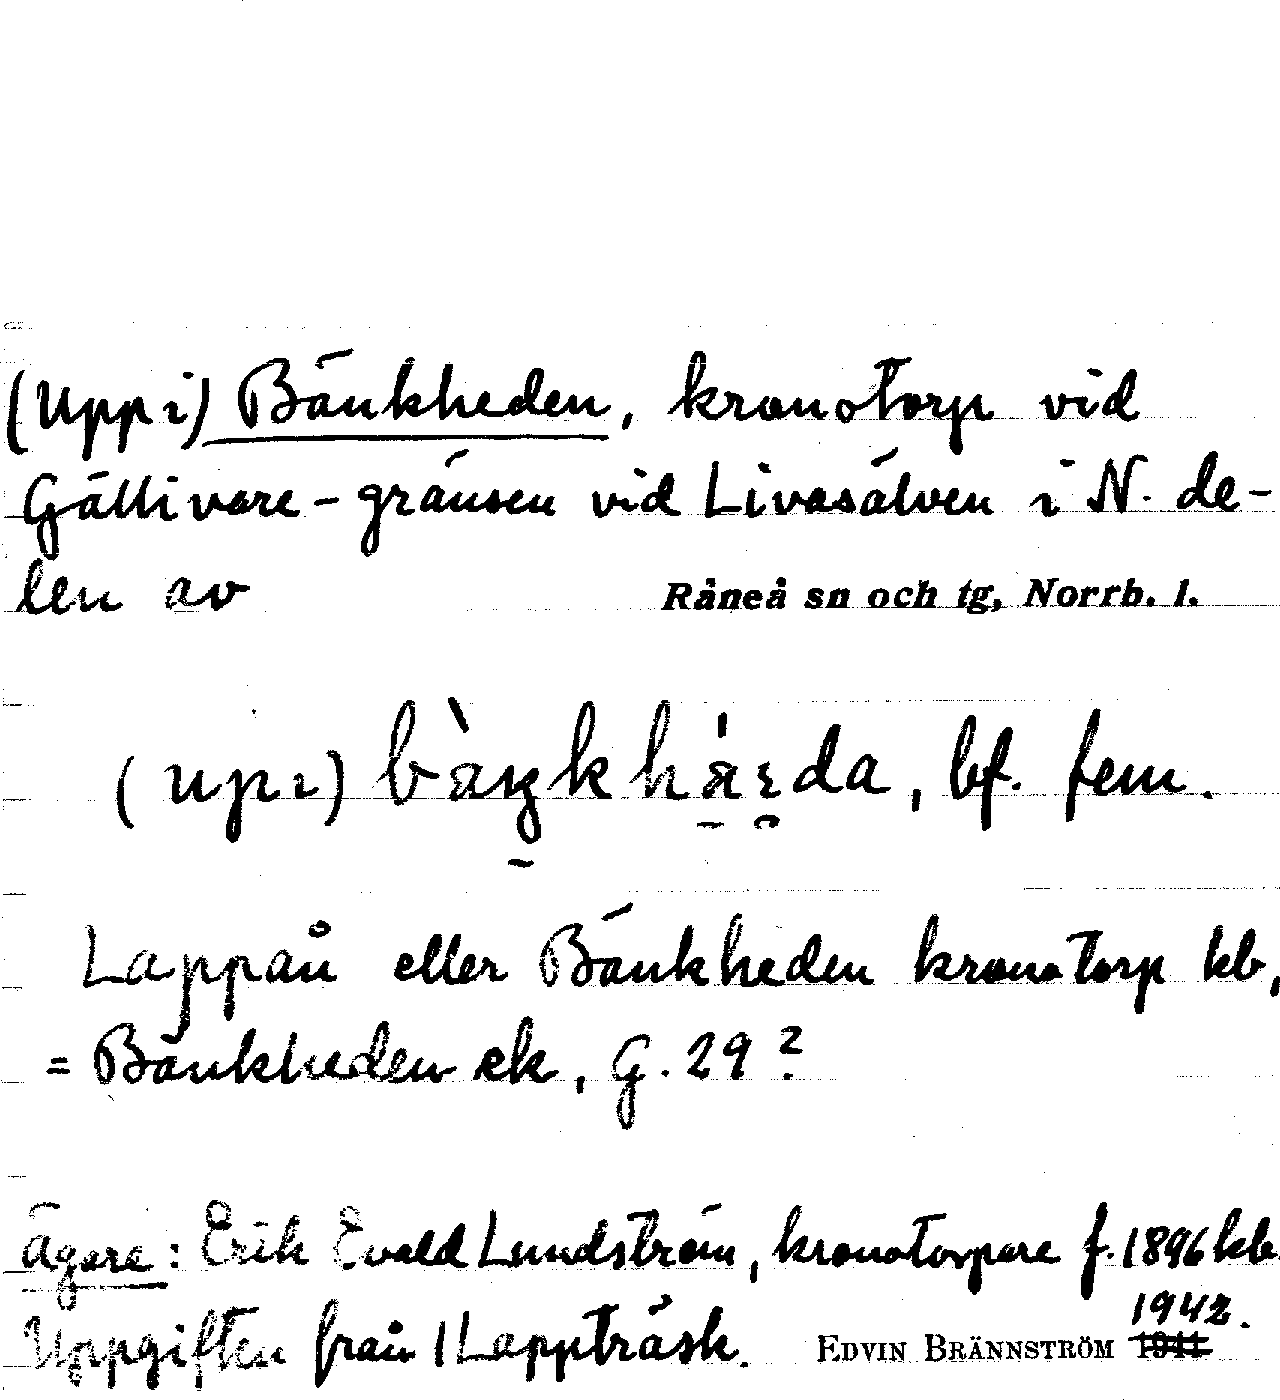 (Uppi) Bänkheden, kronotorp vid
Gällivare-gränsen vid Livasälven i N. de-
len av Råneå sn och tg, Norrb. l.
bf. fem.
Lappån eller Bänkheden kronotorp kb,
= Bänkheden ek, G. 29?
Ägare: Erik Evald Lundström, kronotorpare f. 1896 kb.
Uppgiften från Lappträsk. EDVIN BRÄNNSTRÖM 1942.